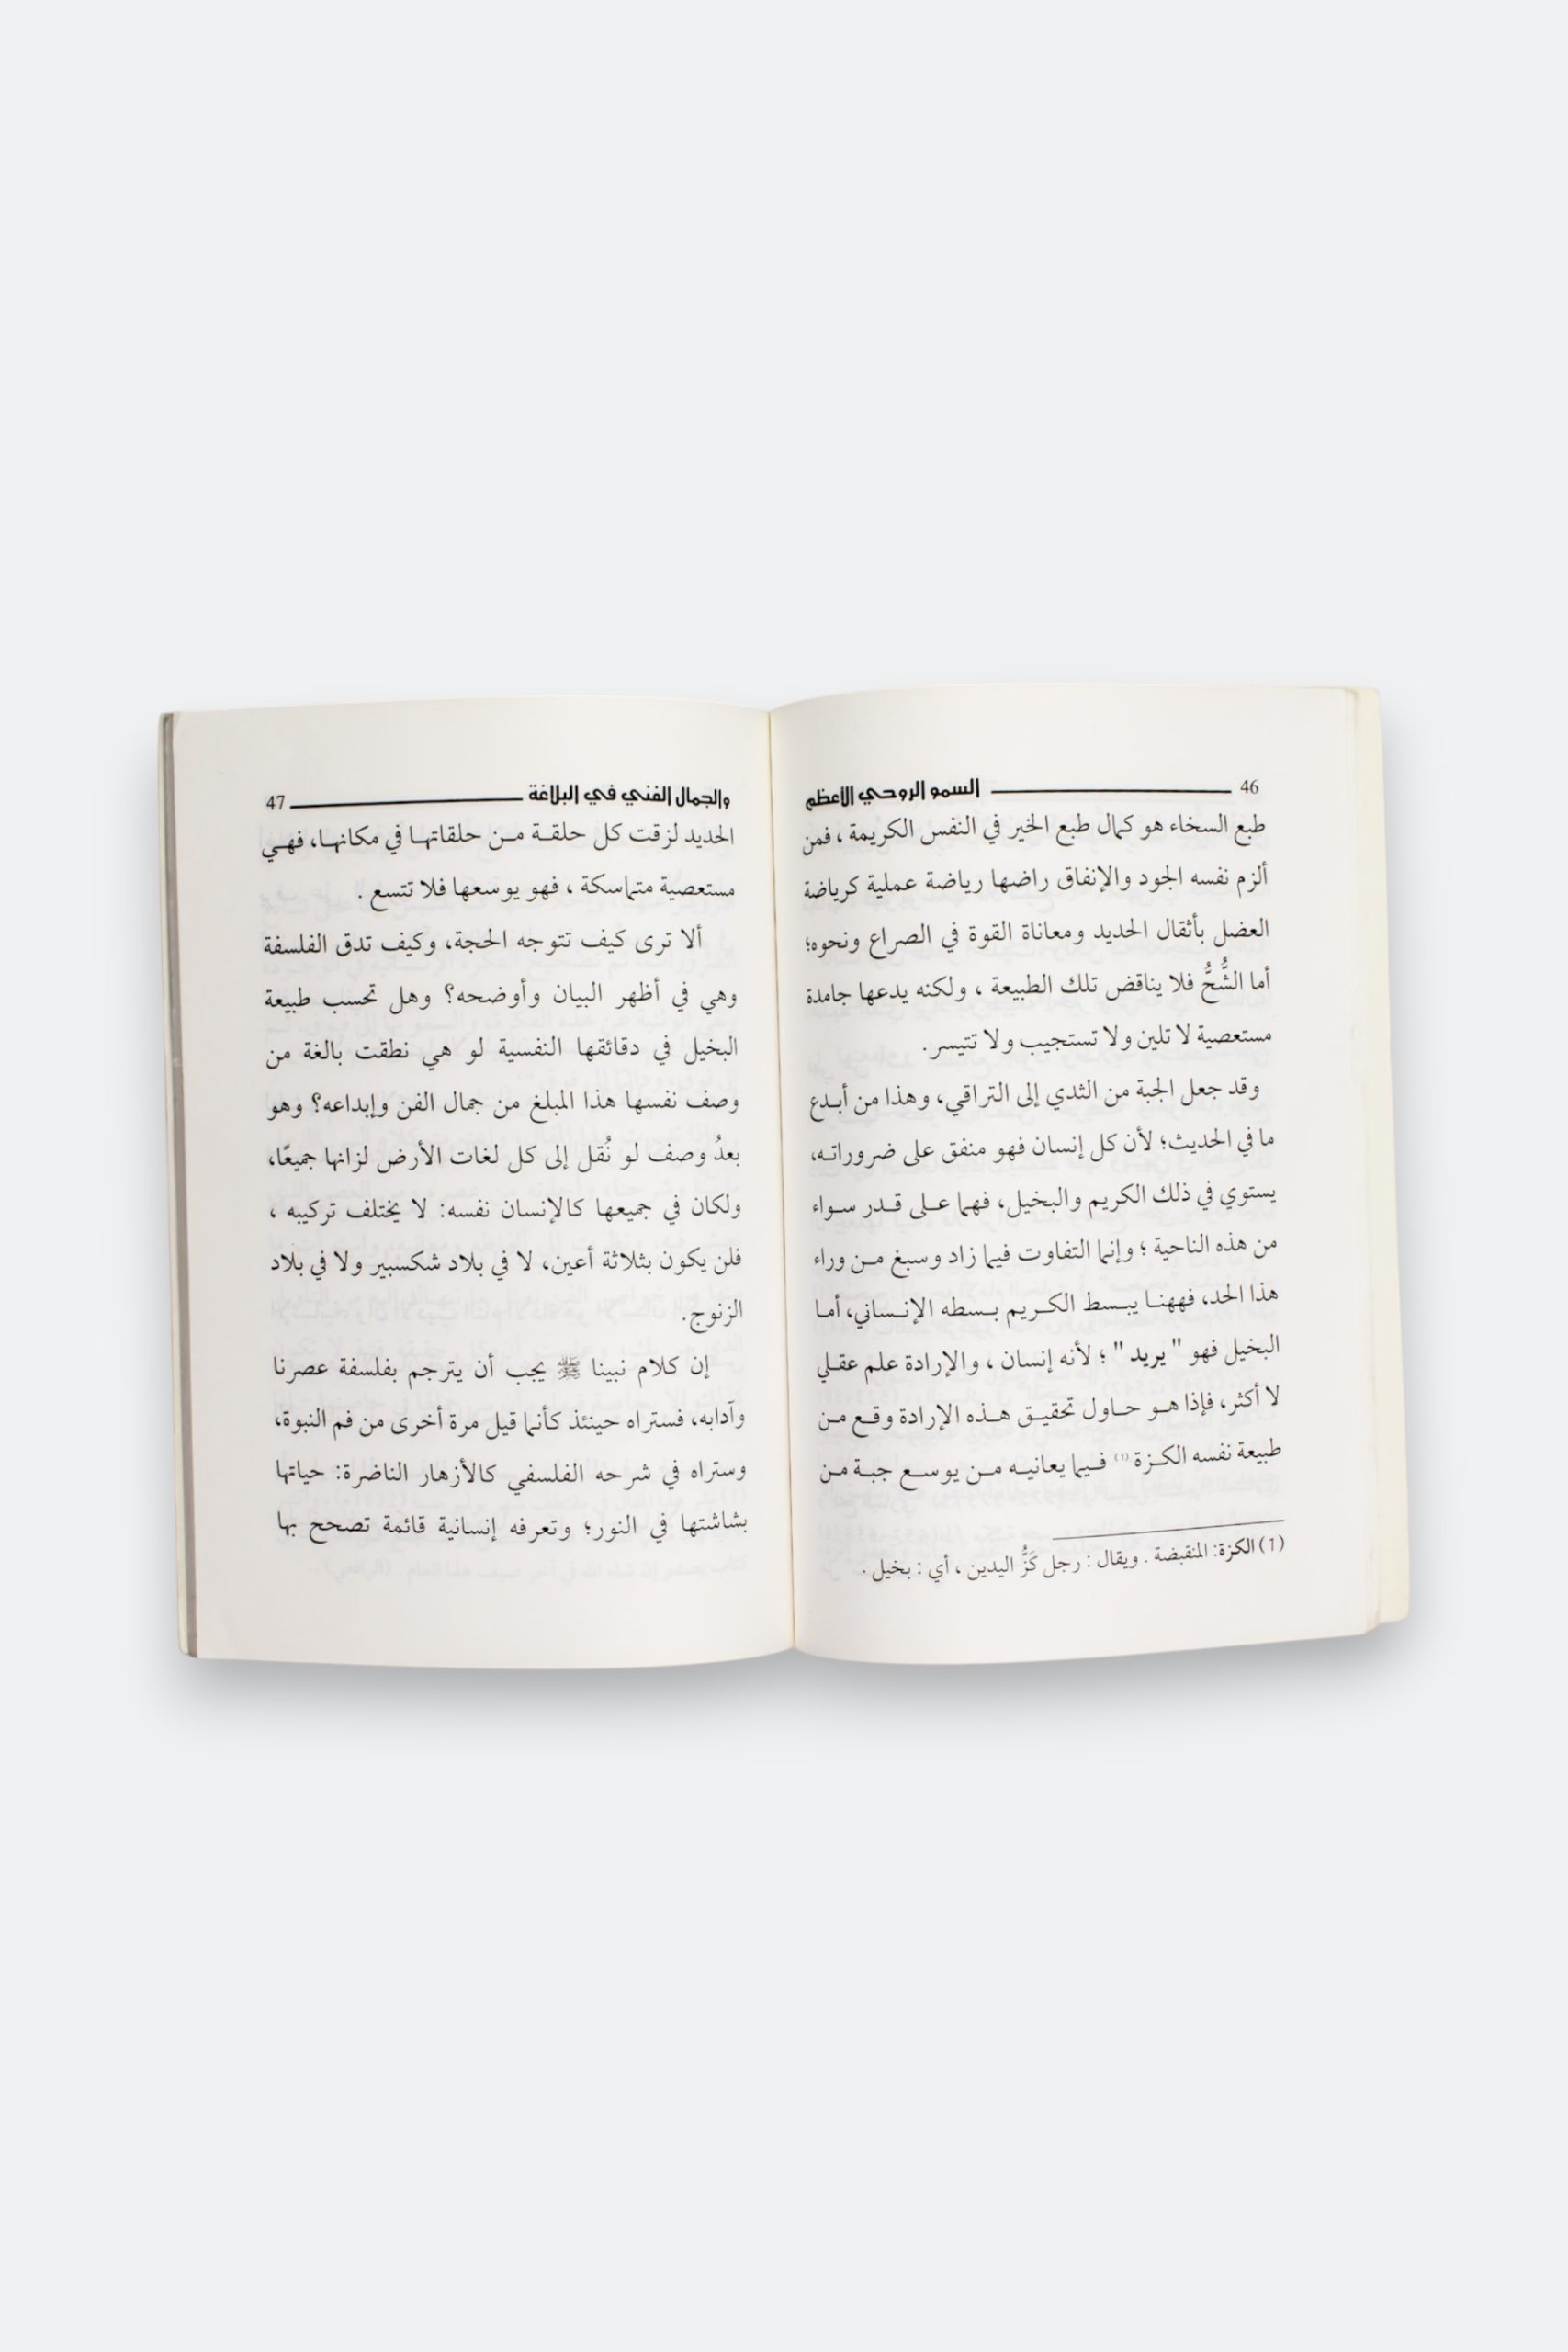 46 السمو الروحي الأعظم
طبع السخاء هو كمال طبع الخير في النفس الكريمة ، فمن
ألزم نفسه الجود والإنفاق راضها رياضة عملية كرياضة
العضل بأثقال الحديد ومعاناة القوة في الصراع ونحوه؛
أما الشُّحُّ فلا يناقض تلك الطبيعة ، ولكنه يدعها جامدة
مستعصية لا تلين ولا تستجيب ولا تتيسر.
وقد جعل الجبة من الثدي إلى التراقي، وهذا من أبـدع
ما في الحديث؛ لأن كل إنسان فهو منفق على ضروراتـه،
يستوي في ذلك الكريم والبخيل، فهما عـلى قـدر سـواء
من هذه الناحية ؛ وإنما التفاوت فيما زاد وسبغ مـن وراء
هذا الحد، فههنـا يبـسط الكـريم بـسطه الإنـساني، أمـا
البخيل فهو " يريد " ؛ لأنه إنسان ، والإرادة علم عقـلي
لا أكثر، فإذا هـو حـاول تحقيـق هـذه الإرادة وقـع مـن
طبيعة نفسه الكـزة (١) فـيما يعانيـه مـن يوسـع جبـة مـن
(1) الكزة: المنقبضة . ويقال : رجل كَزُّ اليدين ، أي : بخيل .
والجمال الفني في البلاغة 47
الحديد لزقت كل حلقـة مـن حلقاتهـا في مكانهـا، فهـي
مستعصية متماسكة ، فهو يوسعها فلا تتسع .
ألا ترى كيف تتوجه الحجة، وكيف تدق الفلسفة
وهي في أظهر البيان وأوضحه؟ وهل تحسب طبيعة
البخيل في دقائقها النفسية لو هي نطقت بالغة من
وصف نفسها هذا المبلغ من جمال الفن وإبداعه؟ وهو
بعدُ وصف لو نُقل إلى كل لغات الأرض لزانها جميعًا،
ولكان في جميعها كالإنسان نفسه: لا يختلف تركيبه ،
فلن يكون بثلاثة أعين، لا في بلاد شكسبير ولا في بلاد
الزنوج.
إن كلام نبينا ﷺ يجب أن يترجم بفلسفة عصرنا
وآدابه، فستراه حينئذ كأنما قيل مرة أخرى من فم النبوة،
وستراه في شرحه الفلسفي كالأزهار الناضرة: حياتها
بشاشتها في النور؛ وتعرفه إنسانية قائمة تصحح بها